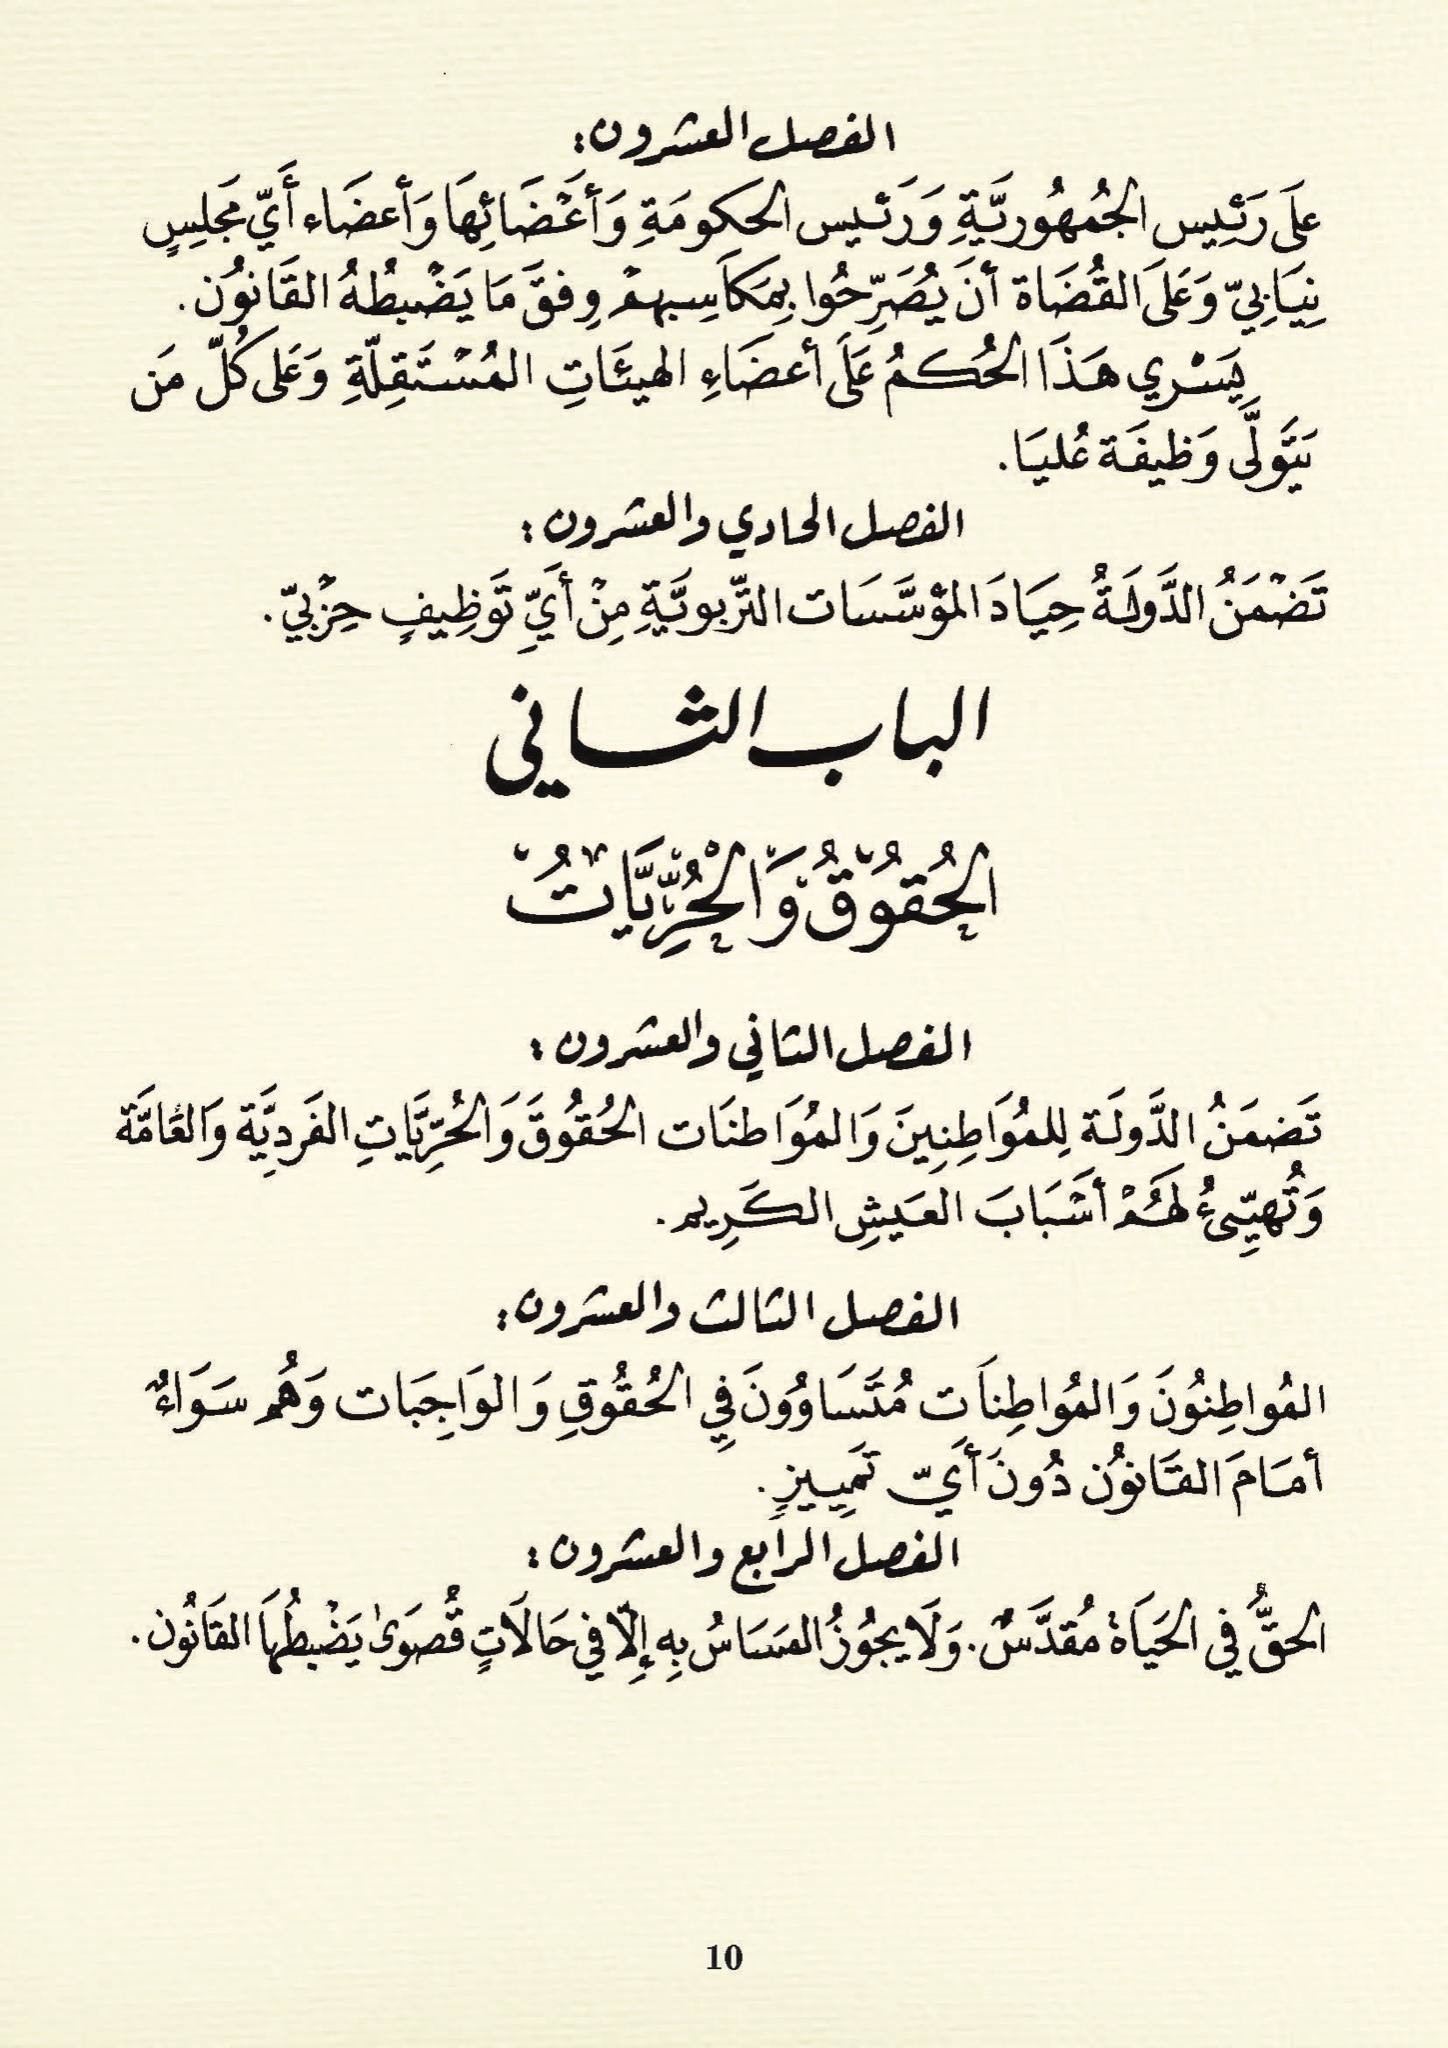 الفصل العشرون:
عَلَى رَئِيس الجُمْهُوريَّةِ وَرَئيس الحكومَةِ وَأعْضَائِهَا وَأعضَاء أَيّ مَجلِسٍ
نِيَابيّ وَعَلَى القُضَاة أنَ يُصَرِّحُوا بِمَكَاسِبهمْ وِفقَ مَا يَضْبطُهُ القَانُون.
يَسْري هَذَا الحُكمُ عَلَى أعضَاءِ الهيئَاتِ المُسْتَقِلّةِ وَعَلى كُلّ مَن
يَتَولَّى وَظيفَة عُليَا.
الفصل الحادي والعشرون:
تَضْمَنُ الدَّولَةُ حِيَادَ المؤسَّسَات التّربويَّةِ مِنْ أيَّ تَوظِيفٍ حِزْبيّ.
الباب الثاني
الحُقُوْقُ وَالْحُرِّيَّاتُ
الفصل الثاني والعشرون:
تَضمَنُ الدَّولَة لِلمُوَاطِنِينَ وَالمُوَاطنَات الحُقُوقَ وَالحُرِّيَّاتِ الفَردِيَّة وَالعَامَّة
وَتُهيِّئُ لهَمُْ أسْبَابَ العَيشِ الكَرِيم.
الفصل الثالث والعشرون:
المُواطِنُونَ وَالمُواطِنَات مُتَسَاوُونَ فِي الحُقُوقِ وَالوَاجِبَات وَهُم سَوَاءٌ
أمَامَ القَانوُن دُونَ أيّ تَمييزٍ.
الفصل الرابع والعشرون:
الحقُّ في الحَيَاة مُقدَّسٌ. وَلَا يجُوُزُ المسَاسُ بِهِ إلّا في حَالَاتٍ قُصوَى يَضْبطُهَا القَانُون.
10